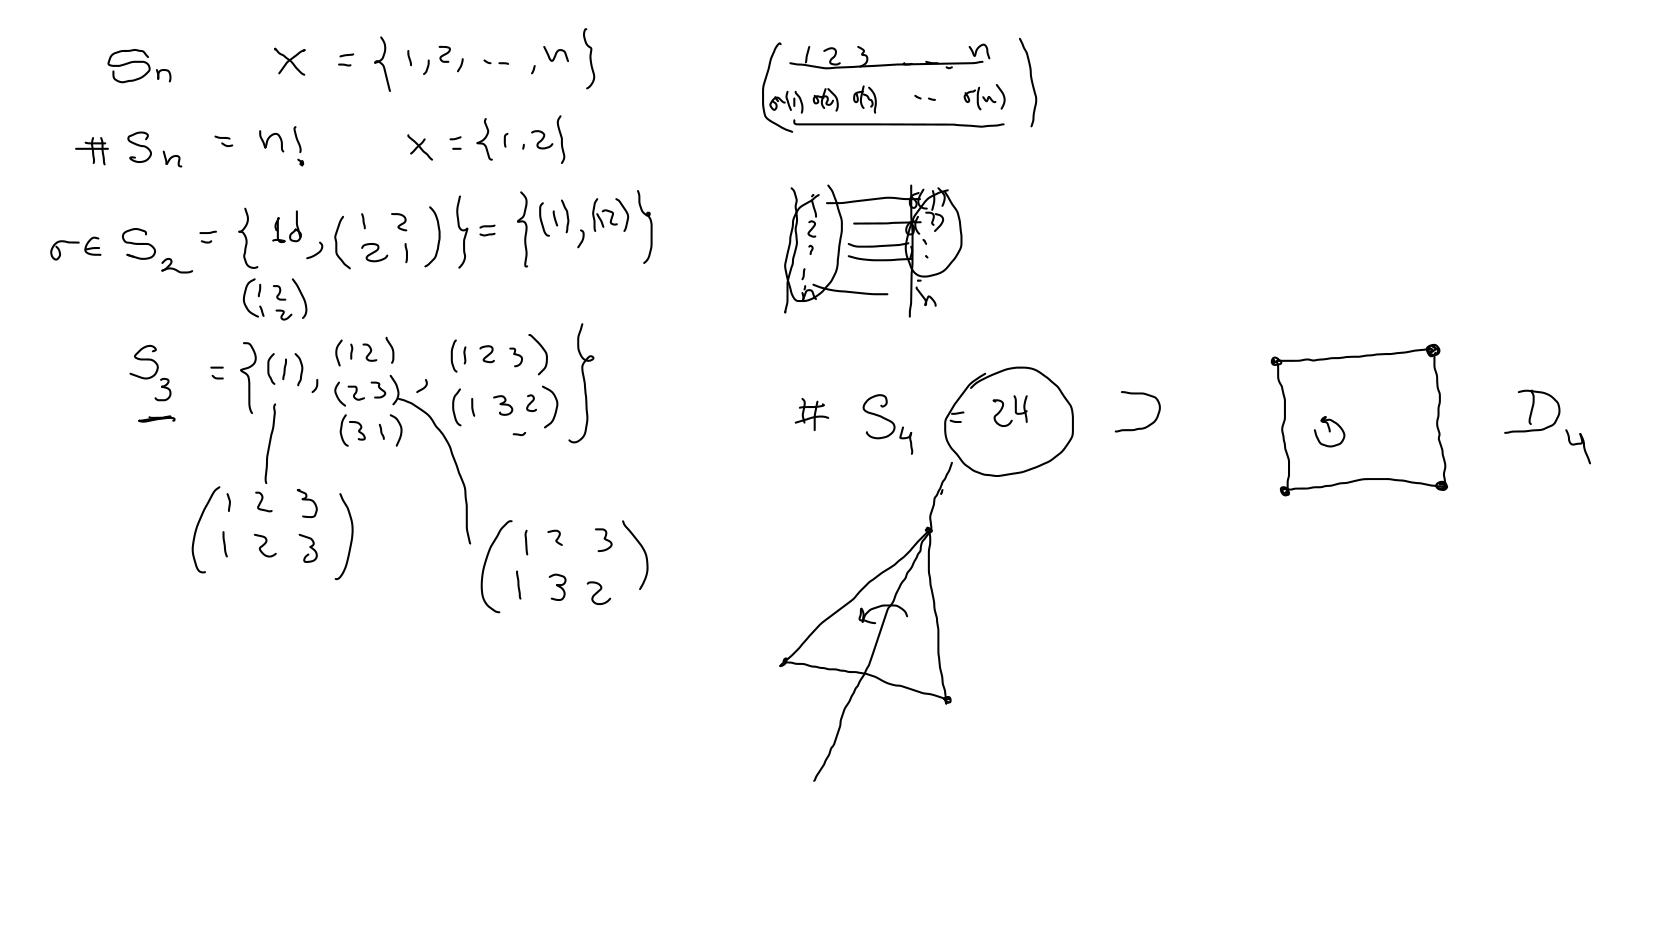 Sn X = {1,2, ... ,n}
# Sn = n! x = {1,2}
σ ∈ S2 = {Id, (1 2
2 1)} = {(1), (12)}
(1 2
1 2)
S3 = {(1), (12) , (1 2 3)
(23) (1 3 2)}
(31)
(1 2 3
1 2 3)
(1 2 3
1 3 2)
(1 2 3 ..... n
σ(1) σ(2) σ(3) .. σ(n))
1 σ(1)
2
n n
# S4 = 24 ⊃ D4